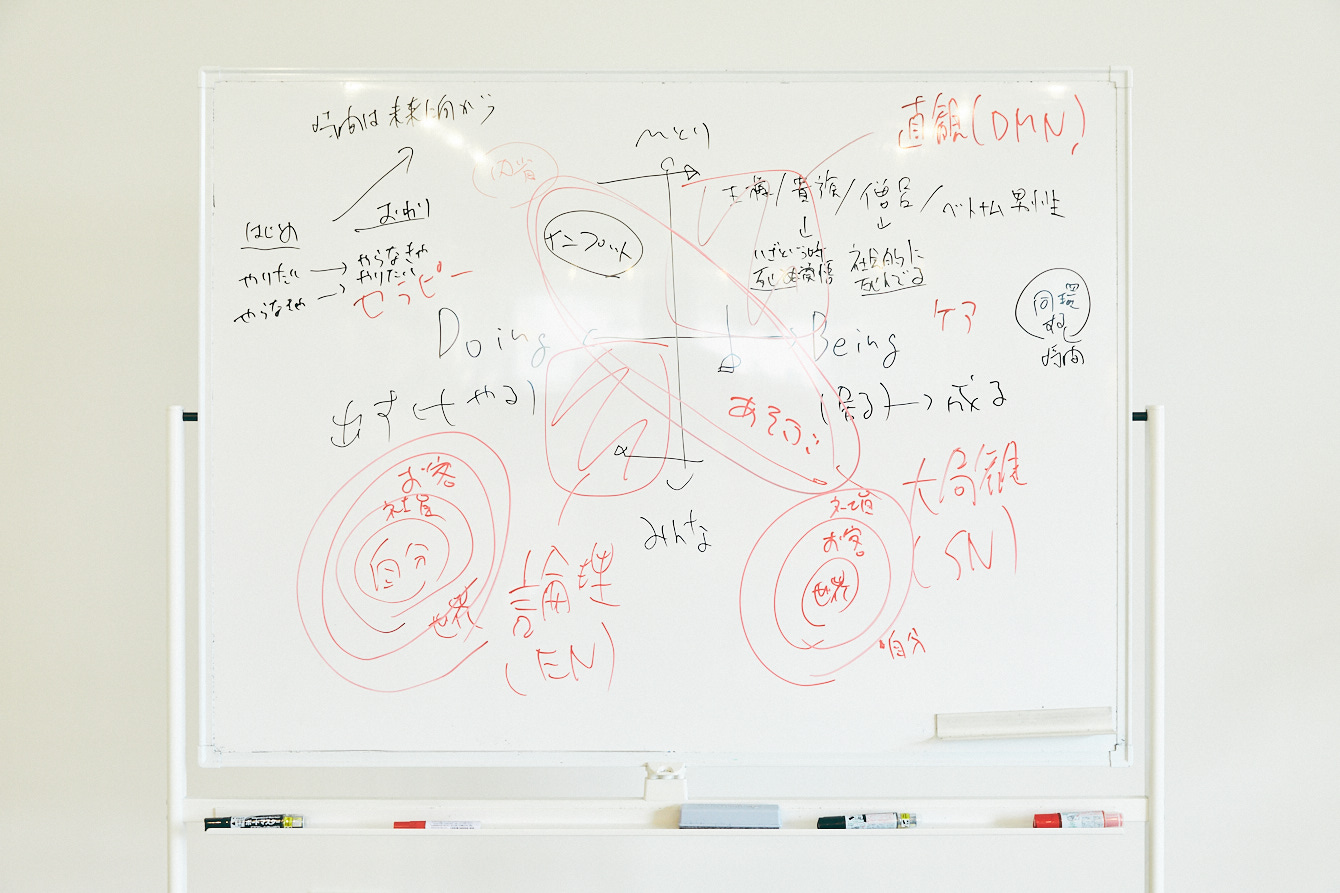 時間は未来に向かう
ひとり
直観(DMN)
内省
主婦/貴族/僧呂/ベトナム男性
はじめ
おわり
インプット
いざという時
死ぬ覚悟
社会的に
死んでる
やりたい → やらなきゃ
やらなきゃ → やりたい
セラピー
Doing
Being
ケア
回環
する
時間
出す(← やる)
(居る) → 成る
あそぶ
お客
社員
自分
世界
みんな
論理
(EN)
大局観
(SN)
社員
お客
世界
自分
ボードマスター